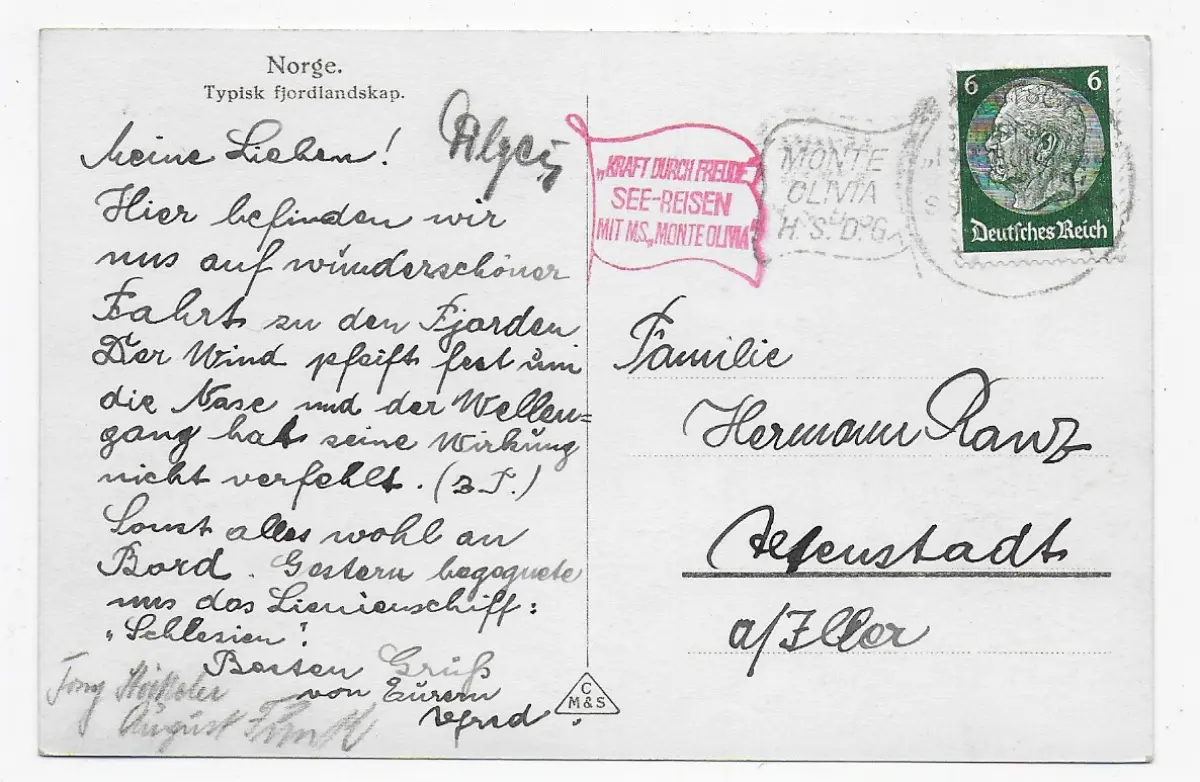 Norge.
Typisk fjordlandskap.
Meine Lieben!
Hier befinden wir
uns auf wünderschöner
Fahrt zu den Fjorden
Der Wind pfeift fest um
die Nase und der Wellen=
gang hat seine Wirkung
nicht verfehlt. (z T.)
Sonst alles wohl an
Bord. Gestern begegnete
uns das Linienschiff:
"Schlesien".
Besten Gruß
von Eurem
Tony
August
C
M&S
„KRAFT DURCH FREUDE"
SEE-REISEN
MIT M.S. „MONTE OLIVIA"
MONTE
OLIVIA
H.S.D.G.
6 6
Deutsches Reich
Familie
Hermann Ranz
Altenstadt
a/Iller